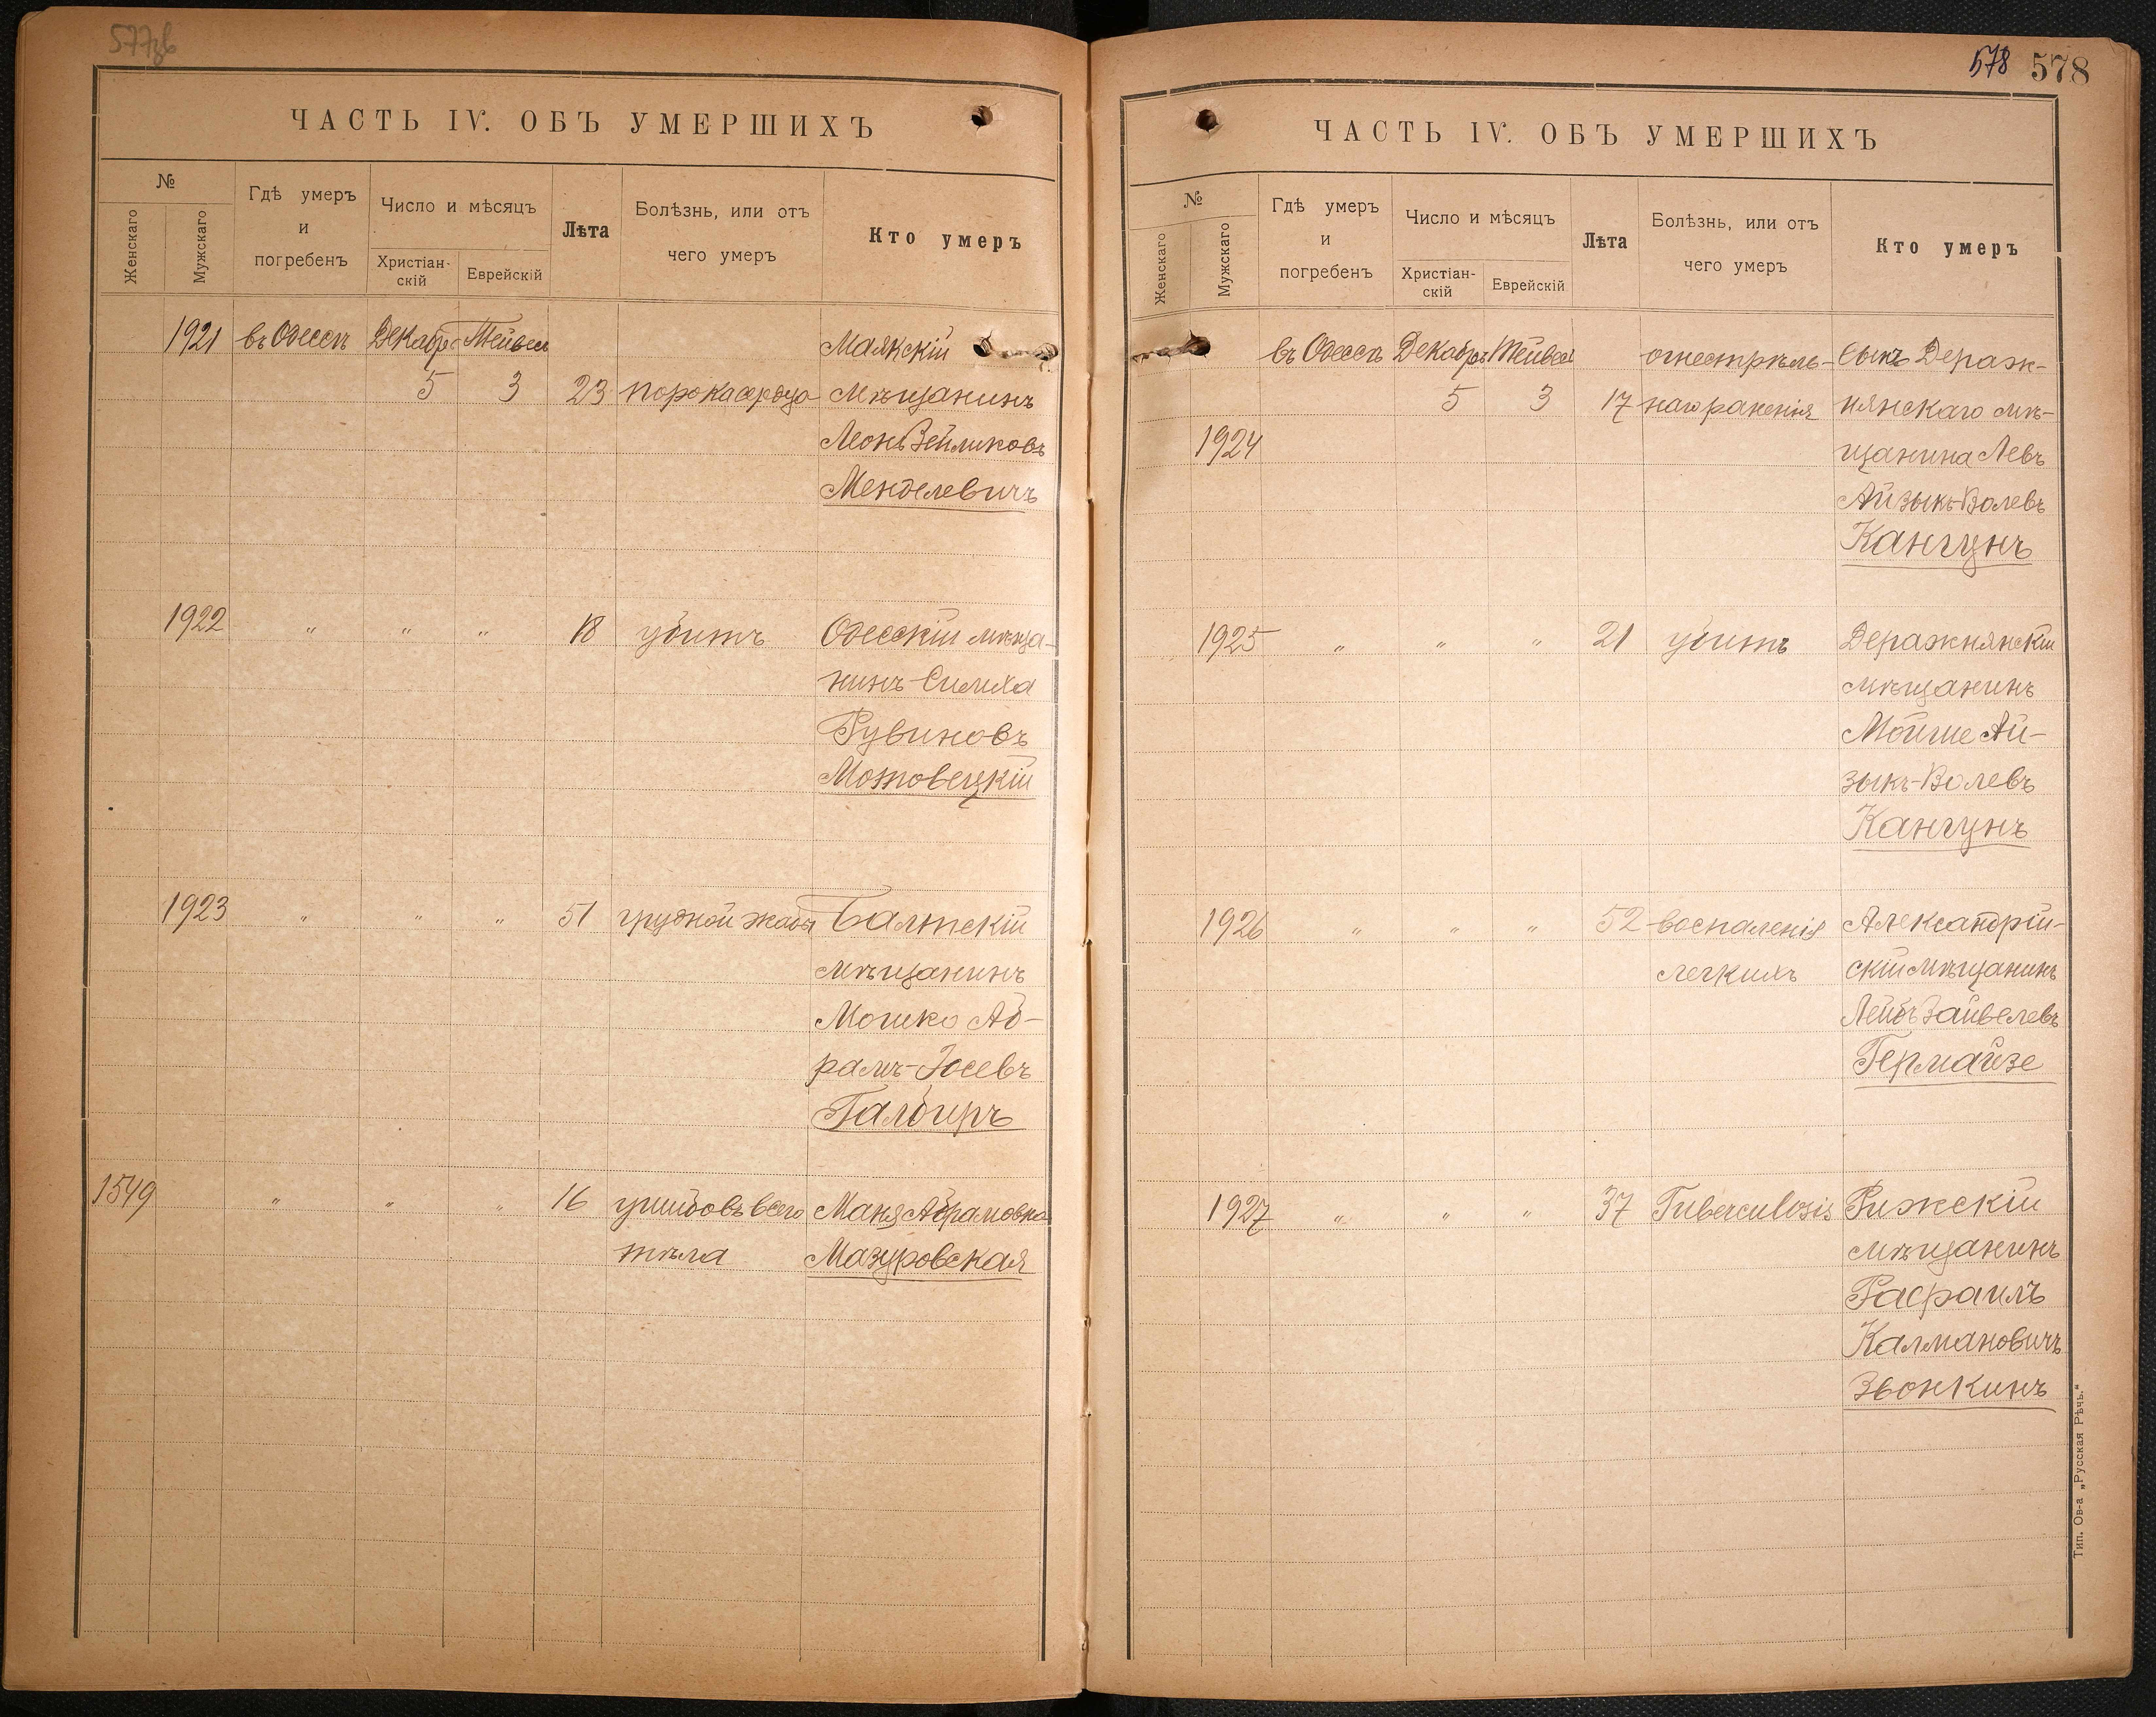 577зв
ЧАСТЬ IV. ОБЪ УМЕРШИХЪ
№
Женскаго
Мужскаго
Гдѣ умеръ
и
погребенъ
Число и мѣсяцъ
Христіан-
скій
Еврейскій
Лѣта
Болѣзнь, или отъ
чего умеръ
Кто умеръ
1921 въ Одессѣ Декабр. Тейвес Маякскій
5 3 23 порока сердца мѣщанинъ
Леонъ Зейликовъ
Менделевичъ
1922 " " " 18 убитъ Одесскій мѣща-
нинъ Симха
Рувиновъ
Мотовецкій
1923 " " " 51 грудной жабы Балтскій
мѣщанинъ
Мошко Аб-
рамъ-Іосевъ
Галбиръ
1549 " " " 16 ушибовъ всего Маня Абрамовна
тѣла Мазуровская
578 578
ЧАСТЬ IV. ОБЪ УМЕРШИХЪ
№
Женскаго
Мужскаго
Гдѣ умеръ
и
погребенъ
Число и мѣсяцъ
Христіан-
скій
Еврейскій
Лѣта
Болѣзнь, или отъ
чего умеръ
Кто умеръ
въ Одессѣ Декабрь Тейвес огнестрѣль- Сынъ Дераж-
5 3 17 наго раненія нянскаго мѣ-
1924 щанина Левъ
Айзыкъ-Волевъ
Кангунъ
1925 " " " 21 убитъ Деражнянскій
мѣщанинъ
Мойше Ай-
зыкъ-Волевъ
Кангунъ
1926 " " " 52 воспаленія Александрій-
легкихъ скій мѣщанинъ
Лейбъ Зайвелевъ
Гермайзе
1927 " " " 37 Tuberculosis Рижскій
мѣщанинъ
Рафаилъ
Калмановичъ
Звонкинъ
Тип. Ов-а „Русская Рѣчь."